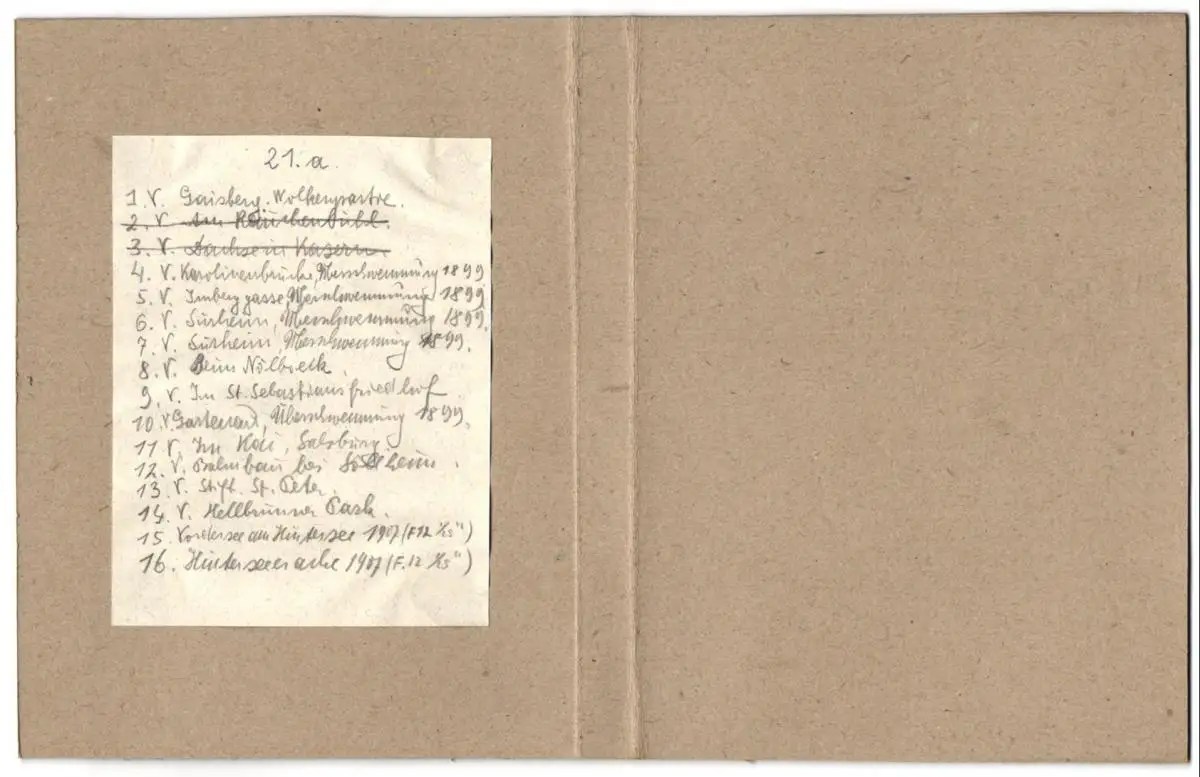 21. a
1. V. Gaisberg. Wolkengasse.
2. V. Am Räuchenbühl.
3. V. Sachsein Kasern.
4. V. Karolinenbrücke, Überschwemmung 1899
5. V. Imberggasse, Überschwemmung 1899
6. V. Surheim, Überschwemmung 1899.
7. V. Surheim, Überschwemmung 1899.
8. V. Beim Nölbreck.
9. V. Im St. Sebastiansfriedhof
10 V. Gartenau, Überschwemmung 1899.
11 V. Im Kai, Salzburg.
12. V. Palmbaum bei heim.
13. V. Stift. St. Peter
14. V. Hellbrunner Park.
15. Vordersee am Hintersee 1907 (F.12 1/25")
16. Hinterseerache 1907 (F.12 1/25")